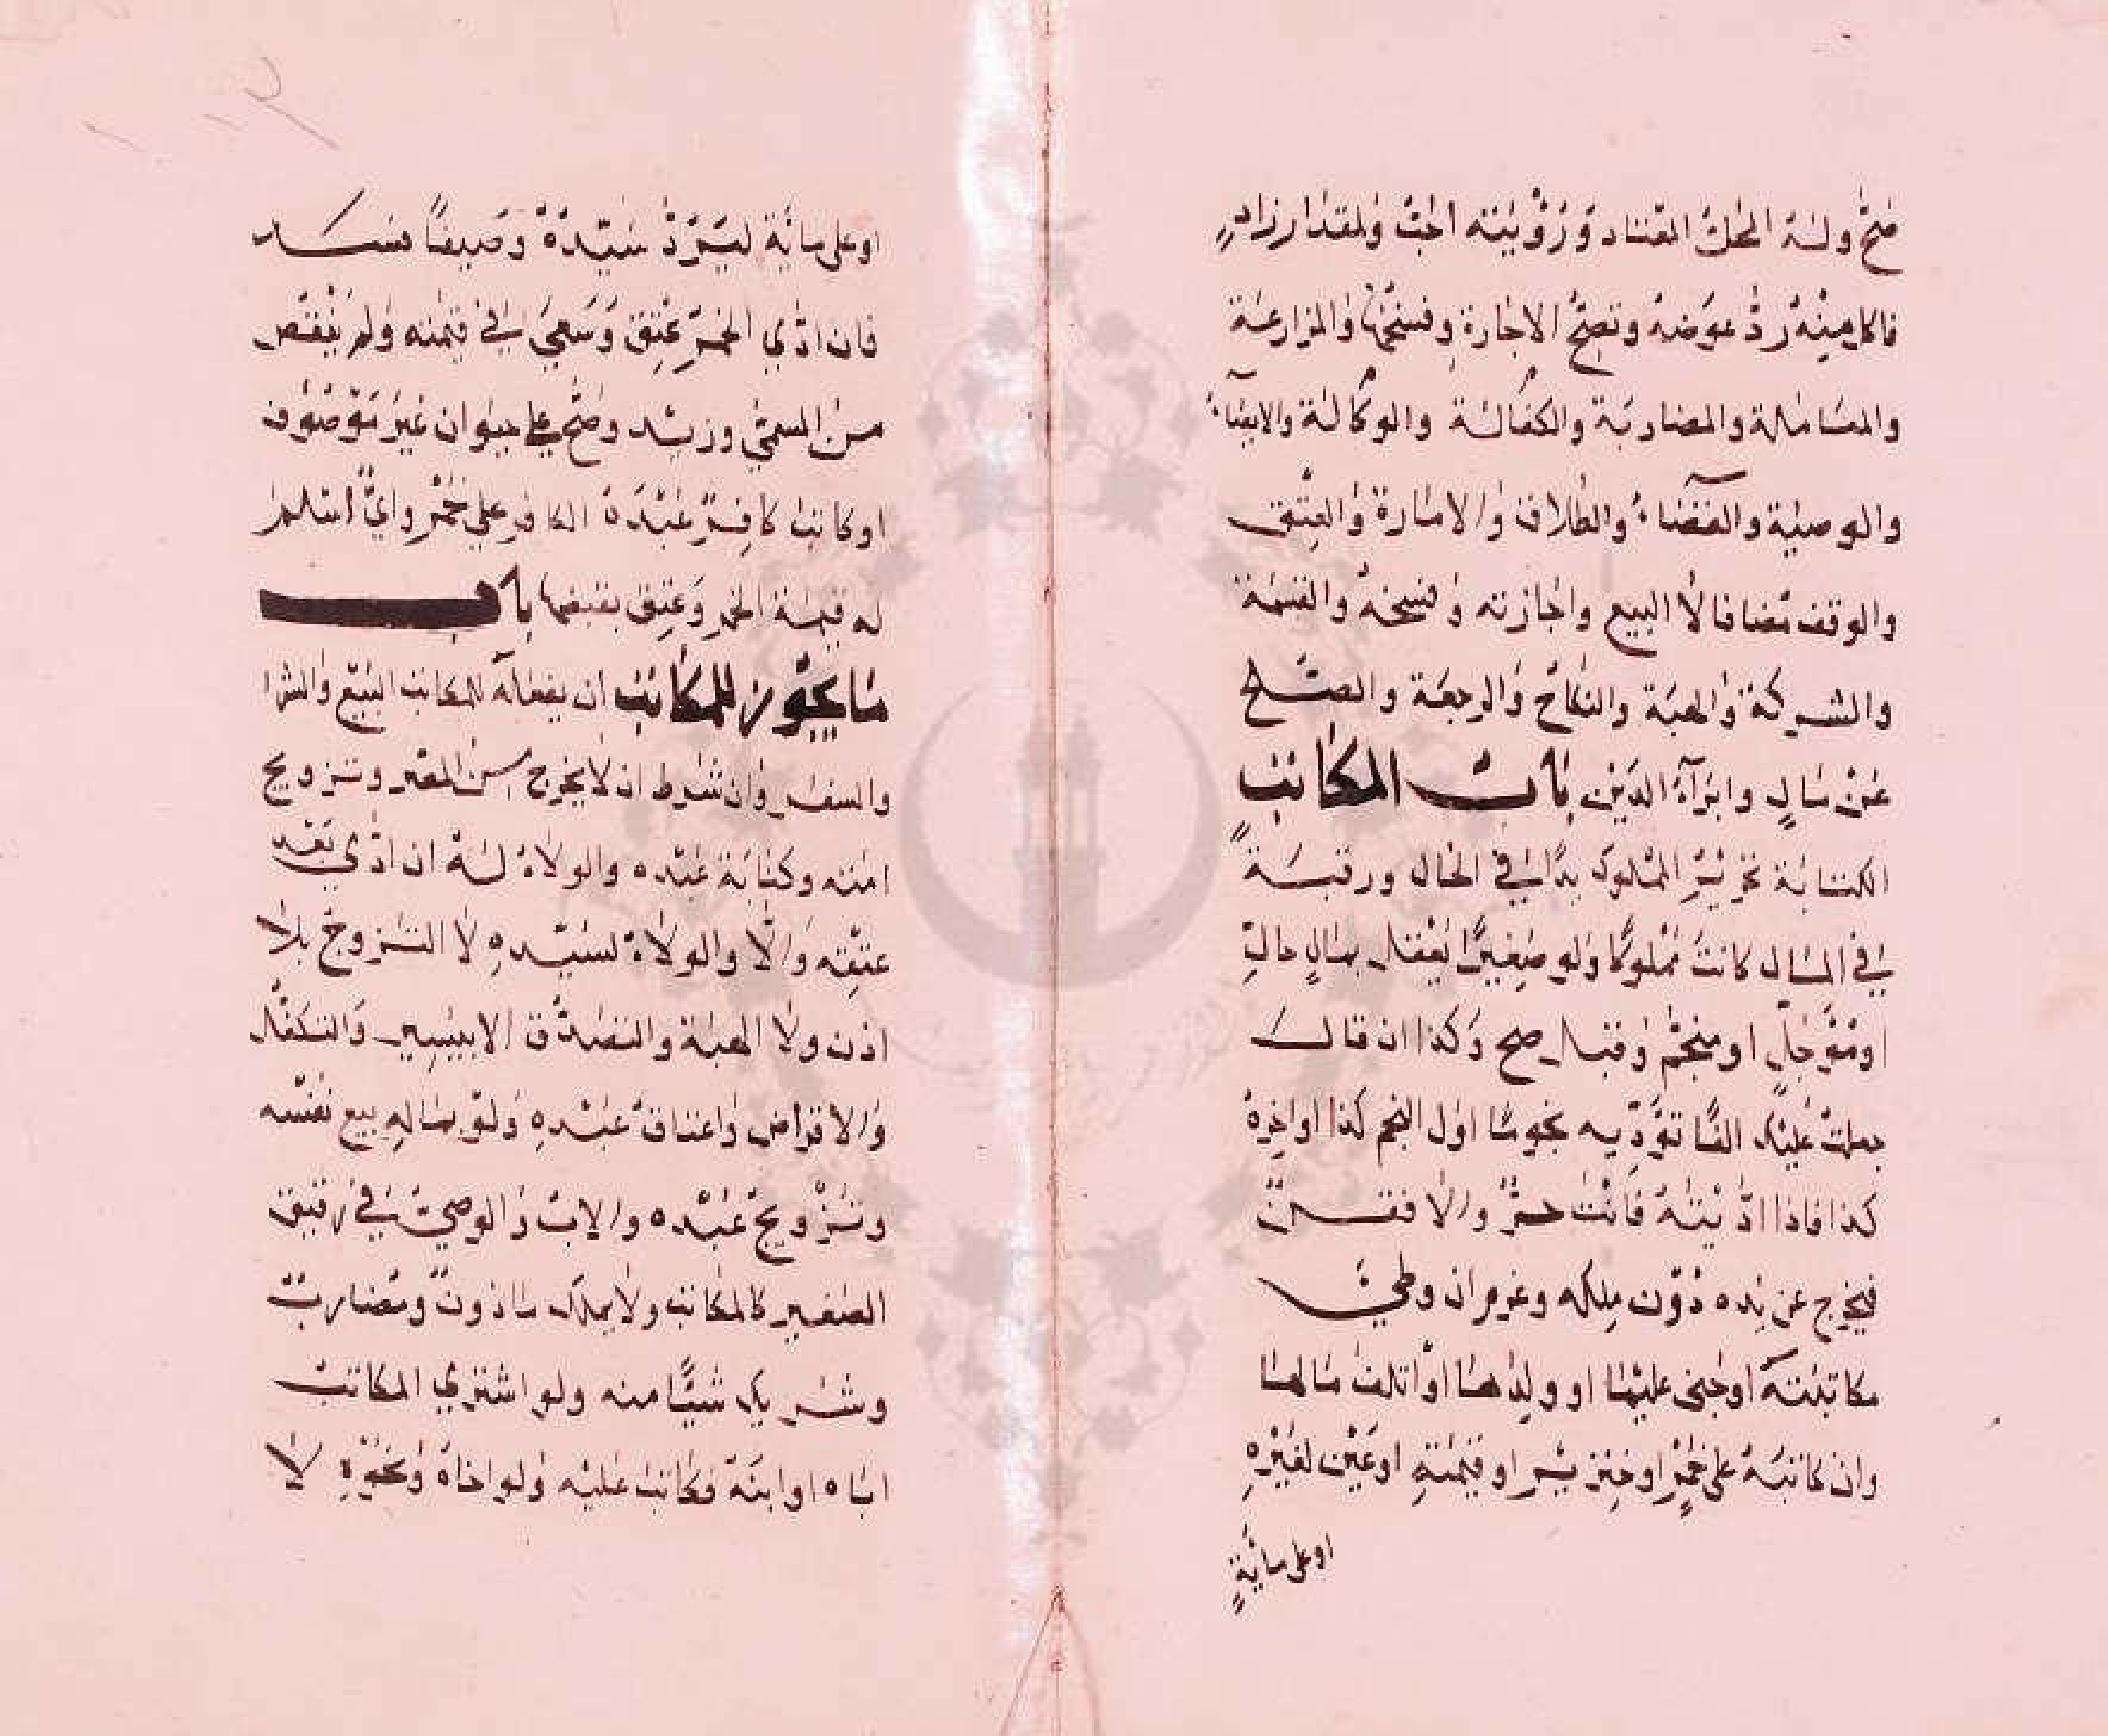 صح وله الحمل المعتاد ورؤيته احب ولمقدار زادٍ
فاكل منه رد عوضه وتصح الاجارة وفسخها والمزارعة
والمعاملة والمضاربة والكفالة والوكالة والايصاء
والوصية والقضاء والطلاق والامارة والعتق
والوقف مضافا لا البيع واجازته وفسخه والقسمة
والشركة والهبة والنكاح والرجعة والصلح
عن مال وابرآء الدين باب المكاتب
الكتابة تحرير المملوك يدا في الحال ورقبة
في المال كاتب مملوكا ولو صغيرا يعقل بمال حال
او مؤجل او منجم وقبل صح وكذا ان قال
جعلت عليك الفا تؤديه نجوما اول النجم كذا واخره
كذا فاذا اديته فانت حر والا فقن
فيخرج عن يده دون ملكه وغرم ان وطئ
مكاتبته او جنى عليها او ولدها او اتلف مالها
وان كاتبه على خمر او خنزير او قيمته او عين لغيره
او على مائة
او على مائة ليرد سيده وصيفا فسد
فان ادي الخمر عتق وسعي في قيمته ولم ينقص
من المسمي وزيد وصح على حيوان غير موصوف
او كاتب كافر عبده الكافر على خمر واي اسلم
له قيمة الخمر وعتق بقبضها باب
ما يجوز للمكاتب ان يفعله للمكاتب البيع والشرا
والسفر وان شرط ان لا يخرج من المصر وتزويج
امته وكتابة عبده والولاء له ان ادي بعد
عتقه والا والولاء لسيده لا التزوج بلا
اذن ولا الهبة والتصدق الا بيسير والتكفل
والاقراض واعتاق عبده ولو بمال وبيع نفسه
وتزويج عبده والاب والوصي في رقيق
الصغير كالمكاتب ولا يملك ماذون ومضارب
وشريك شيئا منه ولو اشتري المكاتب
اباه او ابنه فكاتب عليه ولو اخاه ونحوه لا